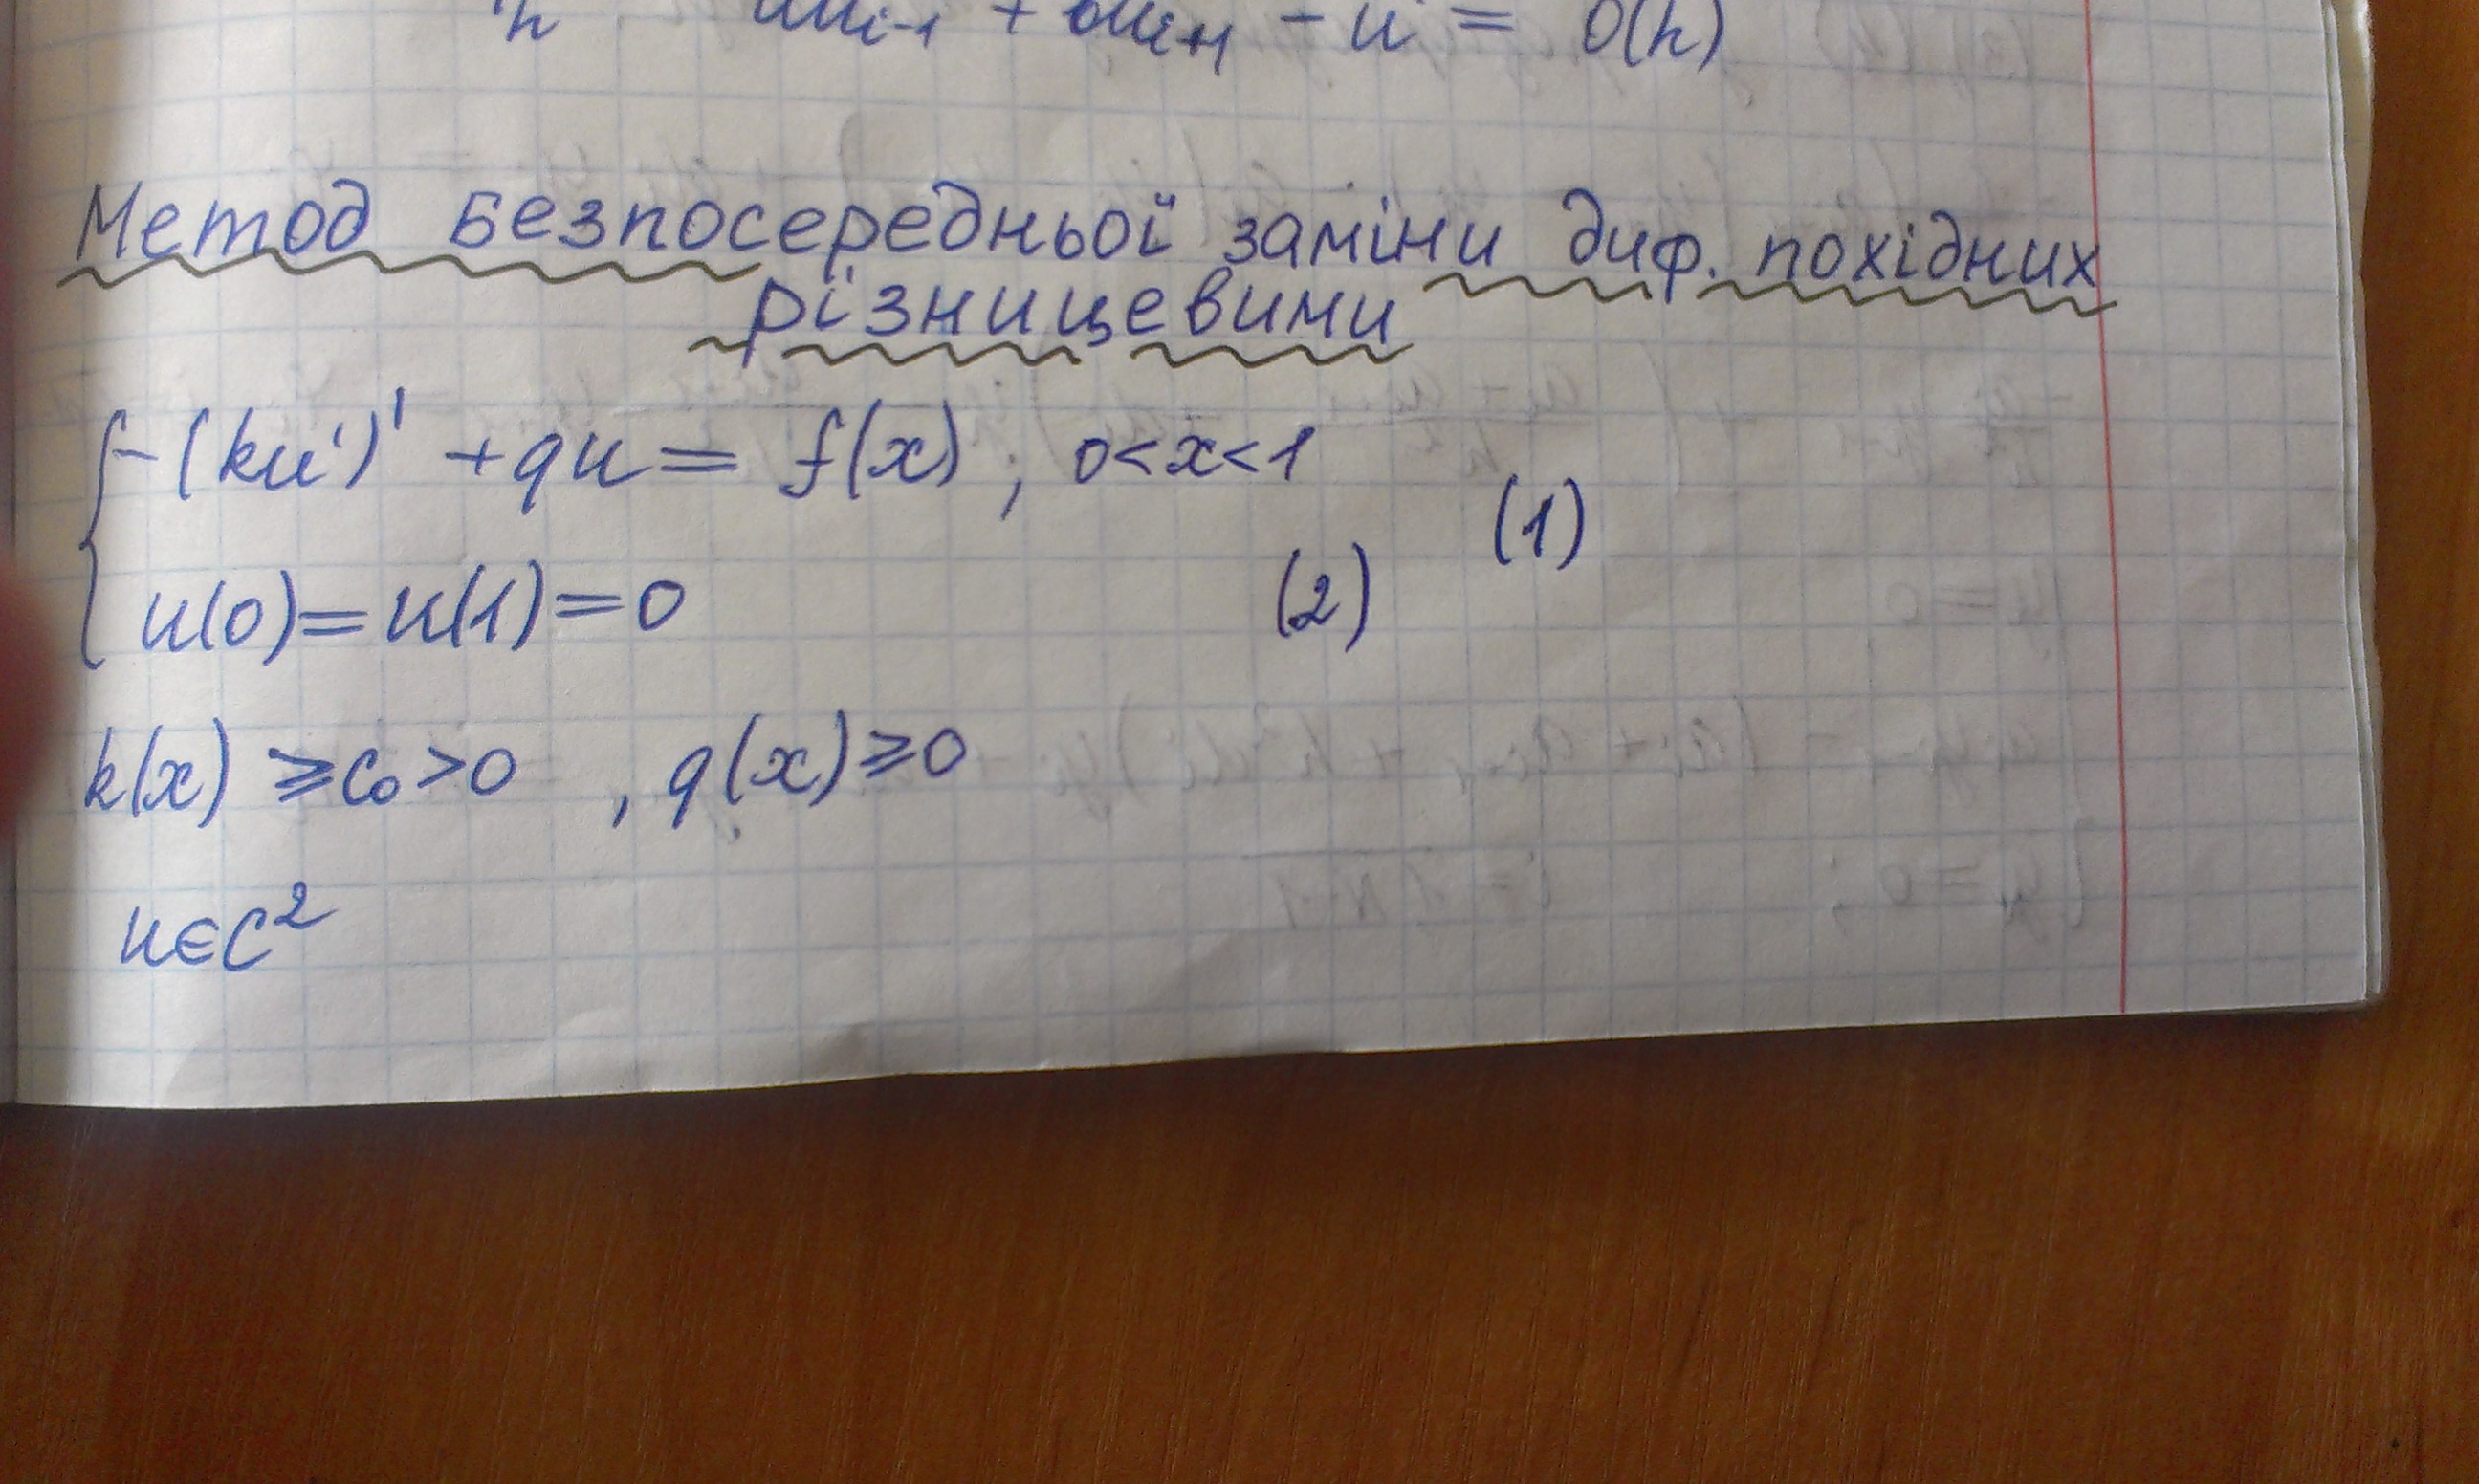 u_{i-1} + u_{i+1} - u = O(h)
Метод безпосередньої заміни диф. похідних
різницевими
{ -(ku')' + qu = f(x), 0<x<1 (1)
u(0)=u(1)=0 (2)
k(x) ⩾ c₀ > 0 , q(x) ⩾ 0
u∈C²